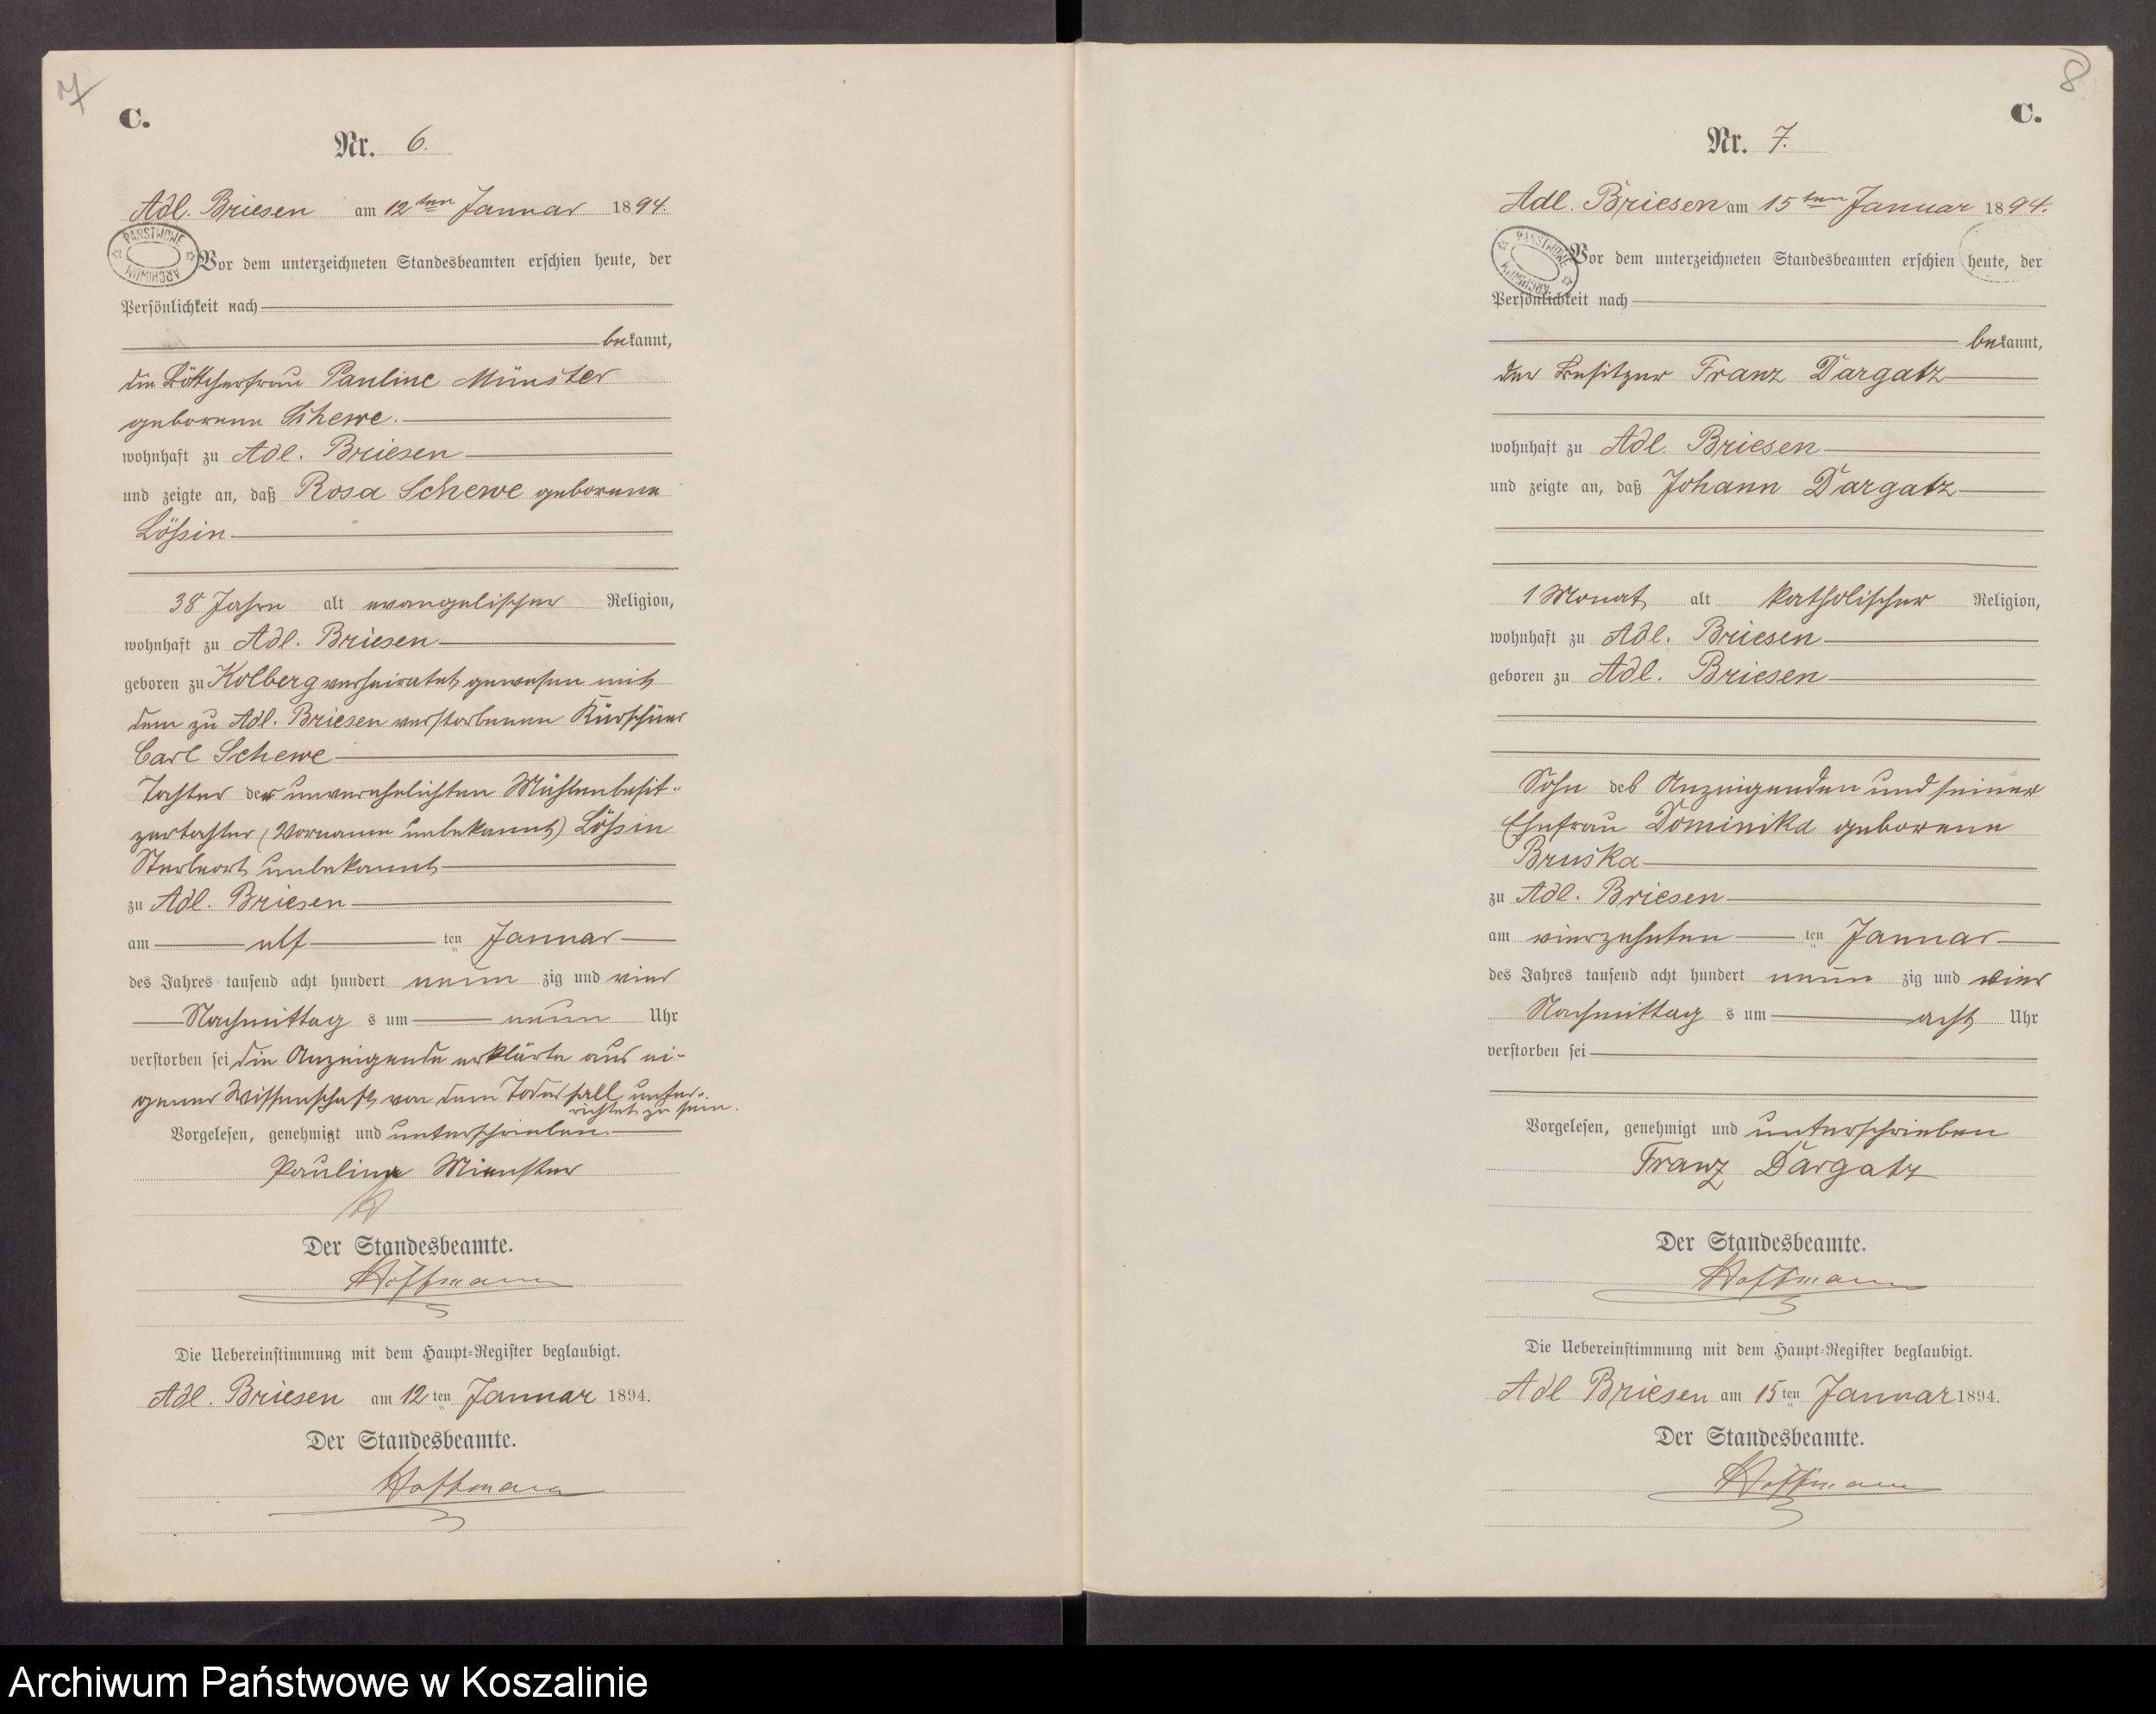 7
C.
Nr. 6.
Adl. Briesen am 12ten Januar 1894.
PAŃSTWOWE
ARCHIWUM
Vor dem unterzeichneten Standesbeamten erschien heute, der
Persönlichkeit nach
bekannt,
die Böttcherfrau Pauline Münster
geborene Schewe.
wohnhaft zu Adl. Briesen
und zeigte an, daß Rosa Schewe geborene
Lößin
38 Jahre alt evangelischer Religion,
wohnhaft zu Adl. Briesen
geboren zu Kolberg verheiratet gewesen mit
dem zu Adl. Briesen verstorbenen Kürschner
Carl Schewe
Tochter der unverehelichten Mühlenbesit-
zertochter (Vorname unbekannt) Lößin
Sterbeort unbekannt
zu Adl. Briesen
am elf ten Januar
des Jahres tausend acht hundert neun zig und vier
Nachmittag s um neun Uhr
verstorben sei die Anzeigende erklärte aus ei-
gener Wissenschaft von dem Todesfall unter-
richtet zu sein.
Vorgelesen, genehmigt und unterschrieben.
Pauline Muenster
Der Standesbeamte.
Hoffmann
Die Uebereinstimmung mit dem Haupt-Register beglaubigt.
Adl. Briesen am 12 ten Januar 1894.
Der Standesbeamte.
Hoffmann
8
C.
Nr. 7.
Adl. Briesen am 15ten Januar 1894.
PAŃSTWOWE
ARCHIWUM
Vor dem unterzeichneten Standesbeamten erschien heute, der
Persönlichkeit nach
bekannt,
der Besitzer Franz Dargatz
wohnhaft zu Adl. Briesen
und zeigte an, daß Johann Dargatz
1 Monat alt katholischer Religion,
wohnhaft zu Adl. Briesen
geboren zu Adl. Briesen
Sohn des Anzeigenden und seiner
Ehefrau Dominika geborene
Bruska
zu Adl. Briesen
am vierzehnten ten Januar
des Jahres tausend acht hundert neun zig und vier
Nachmittag s um acht Uhr
verstorben sei
Vorgelesen, genehmigt und unterschrieben
Franz Dargatz
Der Standesbeamte.
Hoffmann
Die Uebereinstimmung mit dem Haupt-Register beglaubigt.
Adl Briesen am 15 ten Januar 1894.
Der Standesbeamte.
Hoffmann
Archiwum Państwowe w Koszalinie